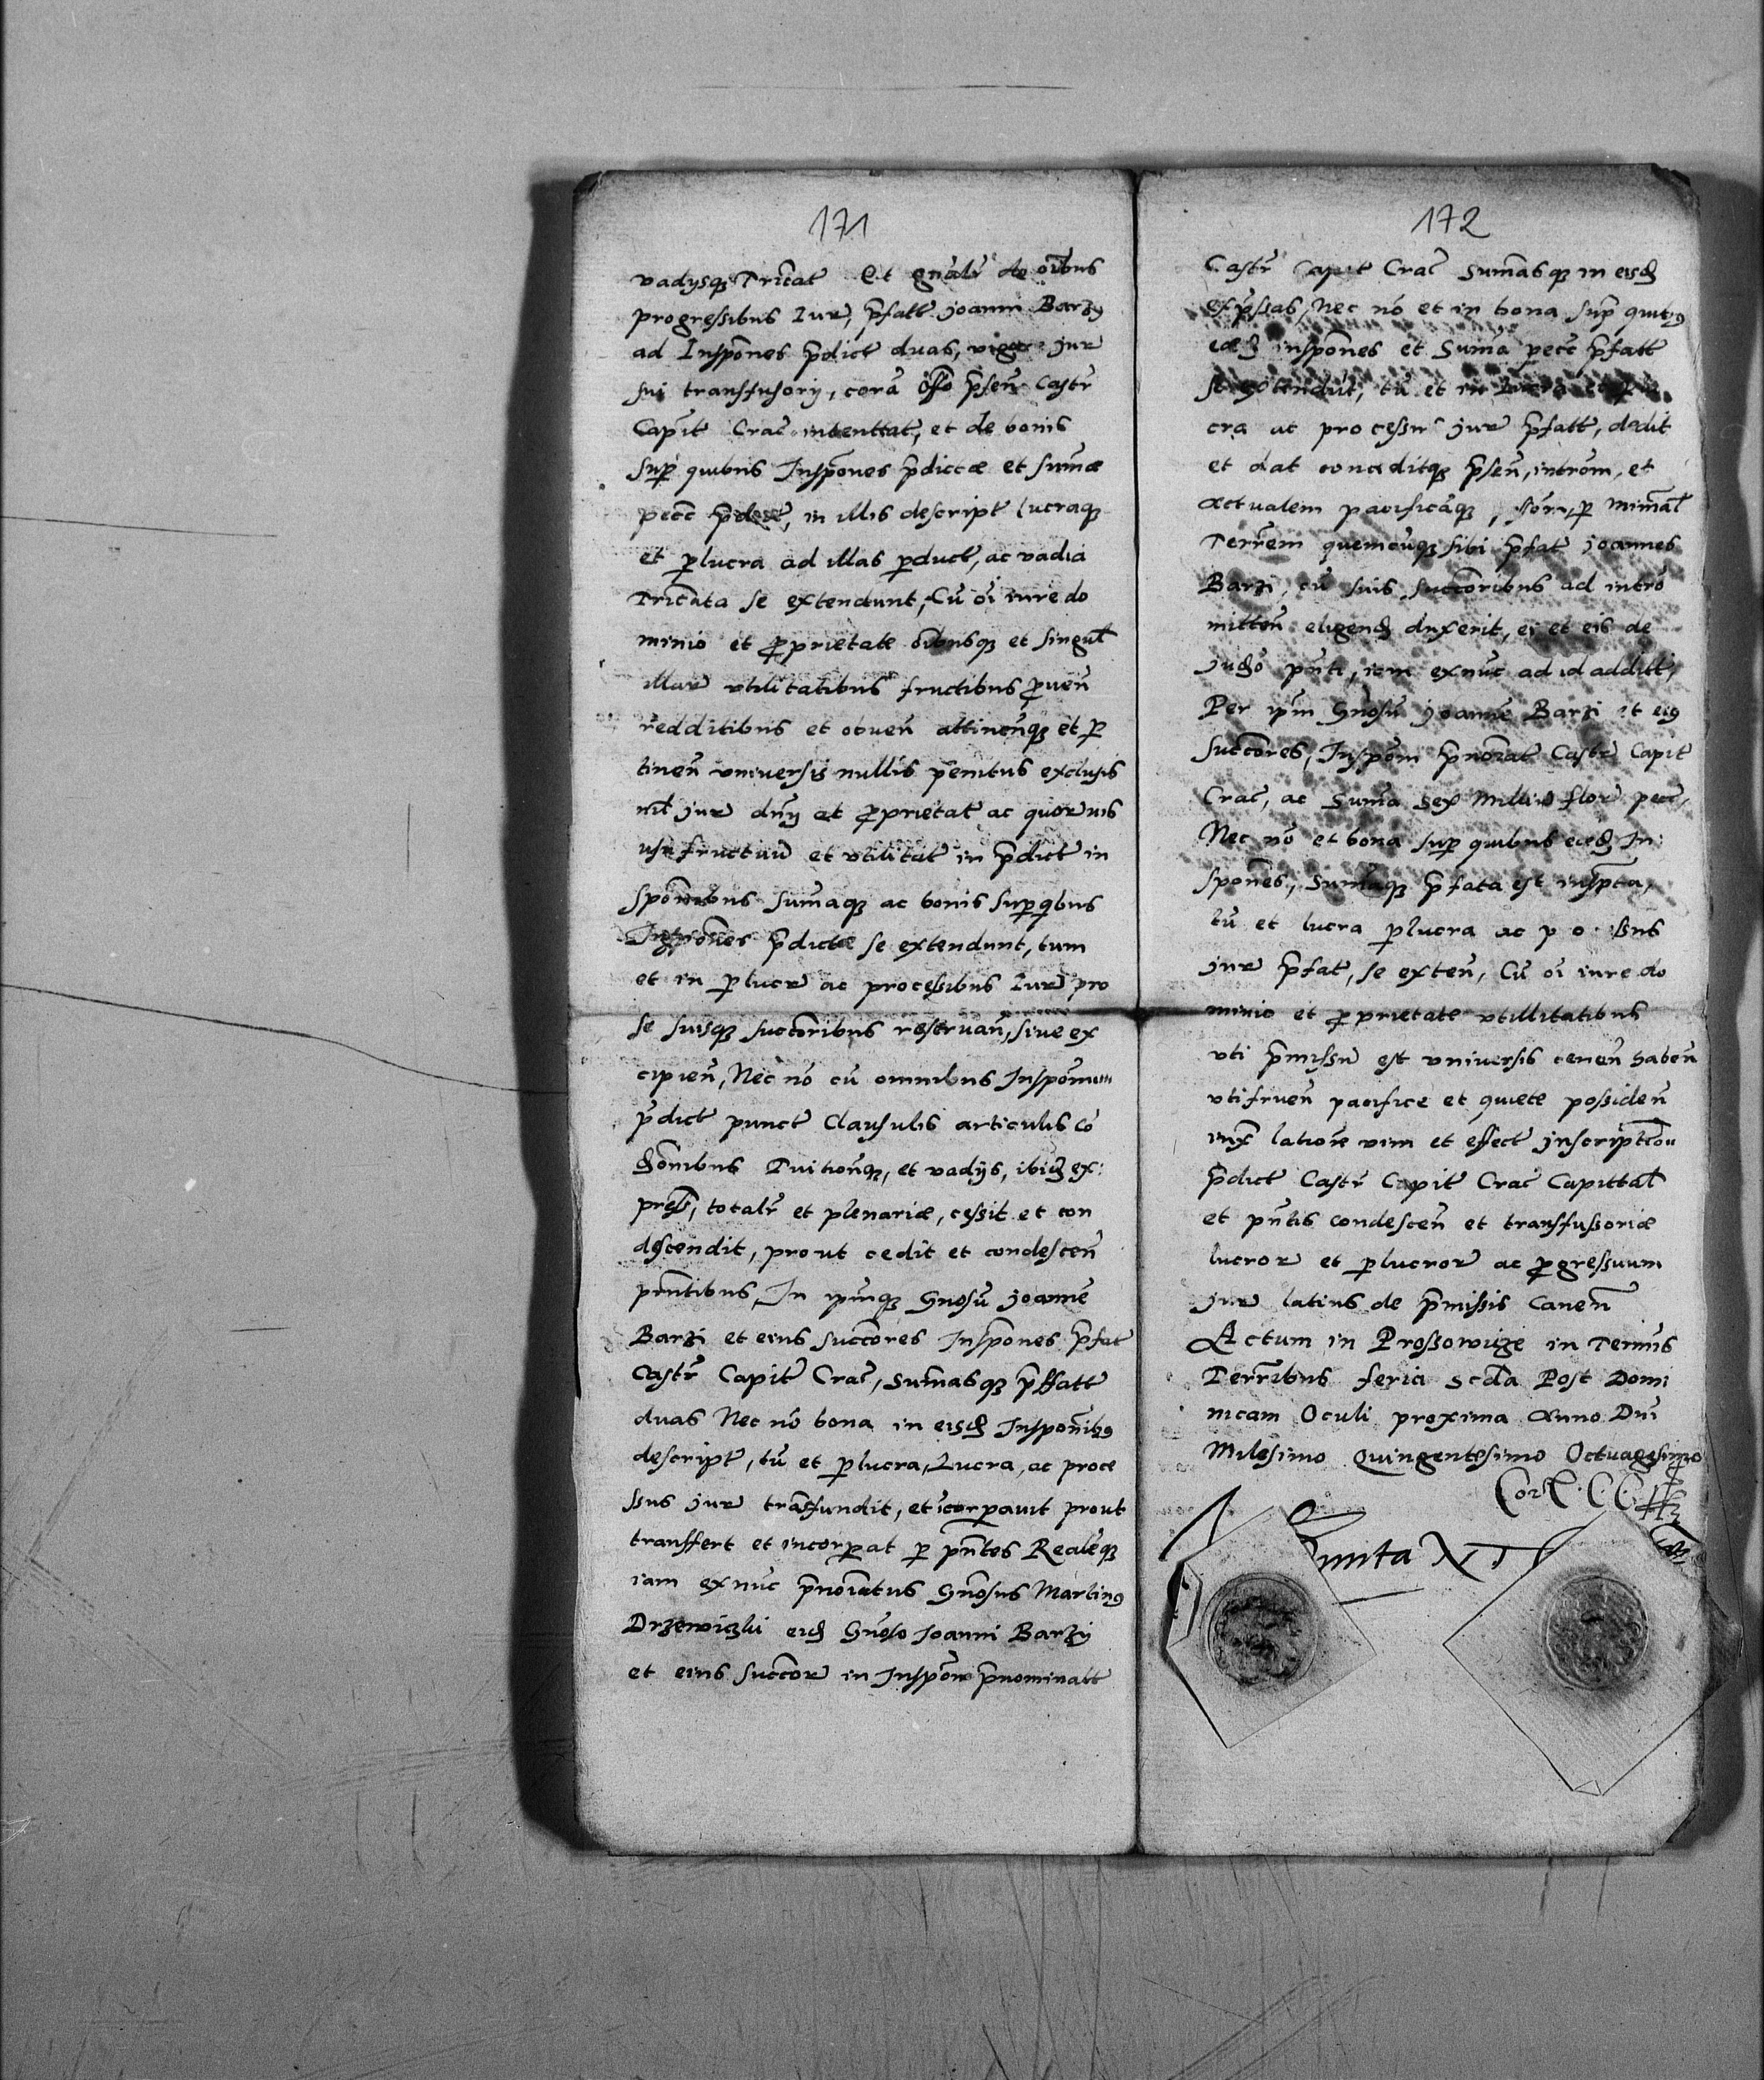 171
vadysq Tricat Et gnali de oibus
progressibus Iur, pfatt joanni Barzy
ad Inspones pdict duas, vigore jur
sui transfusory, cora offo psen Castr
Capit Crac intenttat, et de bonis
Sup quibus Inspones pdictæ et sumæ
pecc in illis descript lucraq
et plucra ad illas pduct, ac vadia
Tricata se extendunt, Cu oi iure do
minio et proprietate oibusq et singul
illar utilitatibus fructibus proven
redditibus et obven attinenq et p
tinen universis nullis penitus exclusis
nil jur dny et proprietat ac quorvis
usufructuu et utilitat in pdict in
sponibus sumaq ac bonis sup qbus
Inspones pdictæ se extendunt, tum
et in plucr ac processibus Iur pro
se suisq succoribus reservan, sive ex
cipien, Nec no cu omnibus Insponum
pdict punct Clausulis articulis co
donibus Tuitionq, et vadijs, ibid ex:
press, totalr et plenariæ, cessit et con
descendit, prout cedit et condescen
pntibus, In ipmq Gnosu joanne
Barzi et eius succores Inspones pfat
Castr Capit Crac, sumasq pffatt
duas Nec no bona in eisd Insponibus
descript, tu et plucra, Lucra, ac proce
ssus jur transfundit, et icorpavit prout
transfert et incorpat p pntes Realeq
iam exnuc pnoiatus Gnosus Martinus
Drzewiczki eid Gnoso Joanni Barzy
et eius succor in Inspone pnominatt
172
Castr Capit Crac Sumasq in eisd
expssas, Nec no et in bona sup quibus
eæd inspones et Suma pecc pfatt
se extendut, tu et in lucra
cra ac processu jur pfatt, dedit
et dat conceditq psen, introm, et
Actualem pacificaq, p minial
Terrem quemcuq sibi pfat joannes
Barzi, cu suis succoribus ad intro
mitten eligend duxerit, ei et eis de
judo pnti, iam exnuc ad id additt,
Per ipm Gnosu joanne Barzi et eius
succores, Inspom pnoiat Castr Capit
Crac, ac Suma Sex Milliu flor pecc,
Nec no et bona sup quibus eæd In:
spones, Sumaq pfata est inspta,
tu et lucra plucra ac
jur pfat, se exten, Cu oi iure do
minio et proprietate utillitatibus
uti pmissu est universis tenen haben
utifruen pacifice et quiete possiden
iux latiore vim et effect inscriptiou
pdict Castr Capit Crac Capittal
et pntis condescen et transfussoriæ
lucror et plucror ac progressuum
jur latius de pmissis Canen
Actum in Prossowicze in Terminis
Terribus feria scda Post Domi
nicam Oculi proxima Anno Dni
Milesimo Quingentesimo Octuagesimo